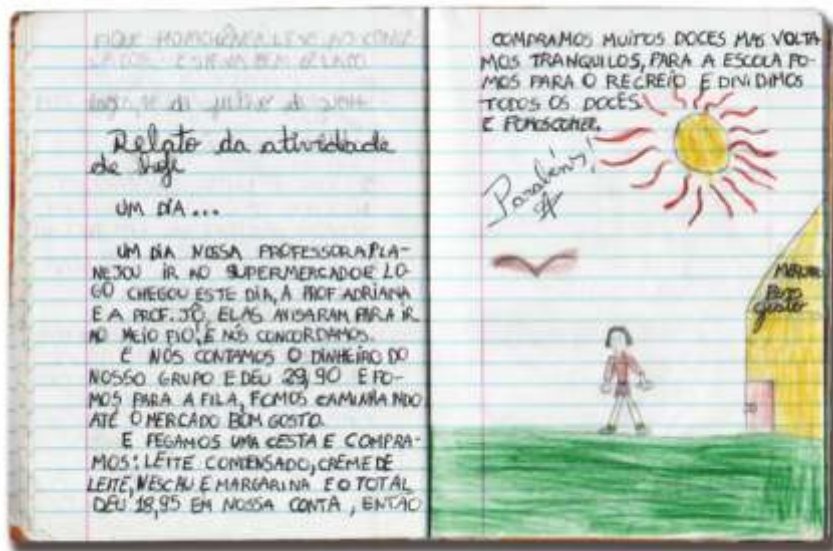 Relato da atividade
de hoje
UM DIA...
UM DIA NOSSA PROFESSORA PLA-
NEJOU IR AO SUPERMERCADO E LO-
GO CHEGOU ESTE DIA, A PROF ADRIANA
E A PROF. JÔ, ELAS AVISARAM PARA IR
NO MEIO FIO, E NÓS CONCORDAMOS.
E NÓS CONTAMOS O DINHEIRO DO
NOSSO GRUPO E DEU 29,90 E FO-
MOS PARA A FILA, FOMOS CAMINHANDO
ATÉ O MERCADO BOM GOSTO.
E PEGAMOS UMA CESTA E COMPRA-
MOS: LEITE CONDENSADO, CREME DE
LEITE, NESCAU E MARGARINA E O TOTAL
DEU 18,95 EM NOSSA CONTA, ENTÃO
COMPRAMOS MUITOS DOCES MAS VOLTA
MOS TRANQUILOS, PARA A ESCOLA FO-
MOS PARA O RECREIO E DIVIDIMOS
TODOS OS DOCES.
E FOMOS COMER.
Parabéns!
Bom
gosto